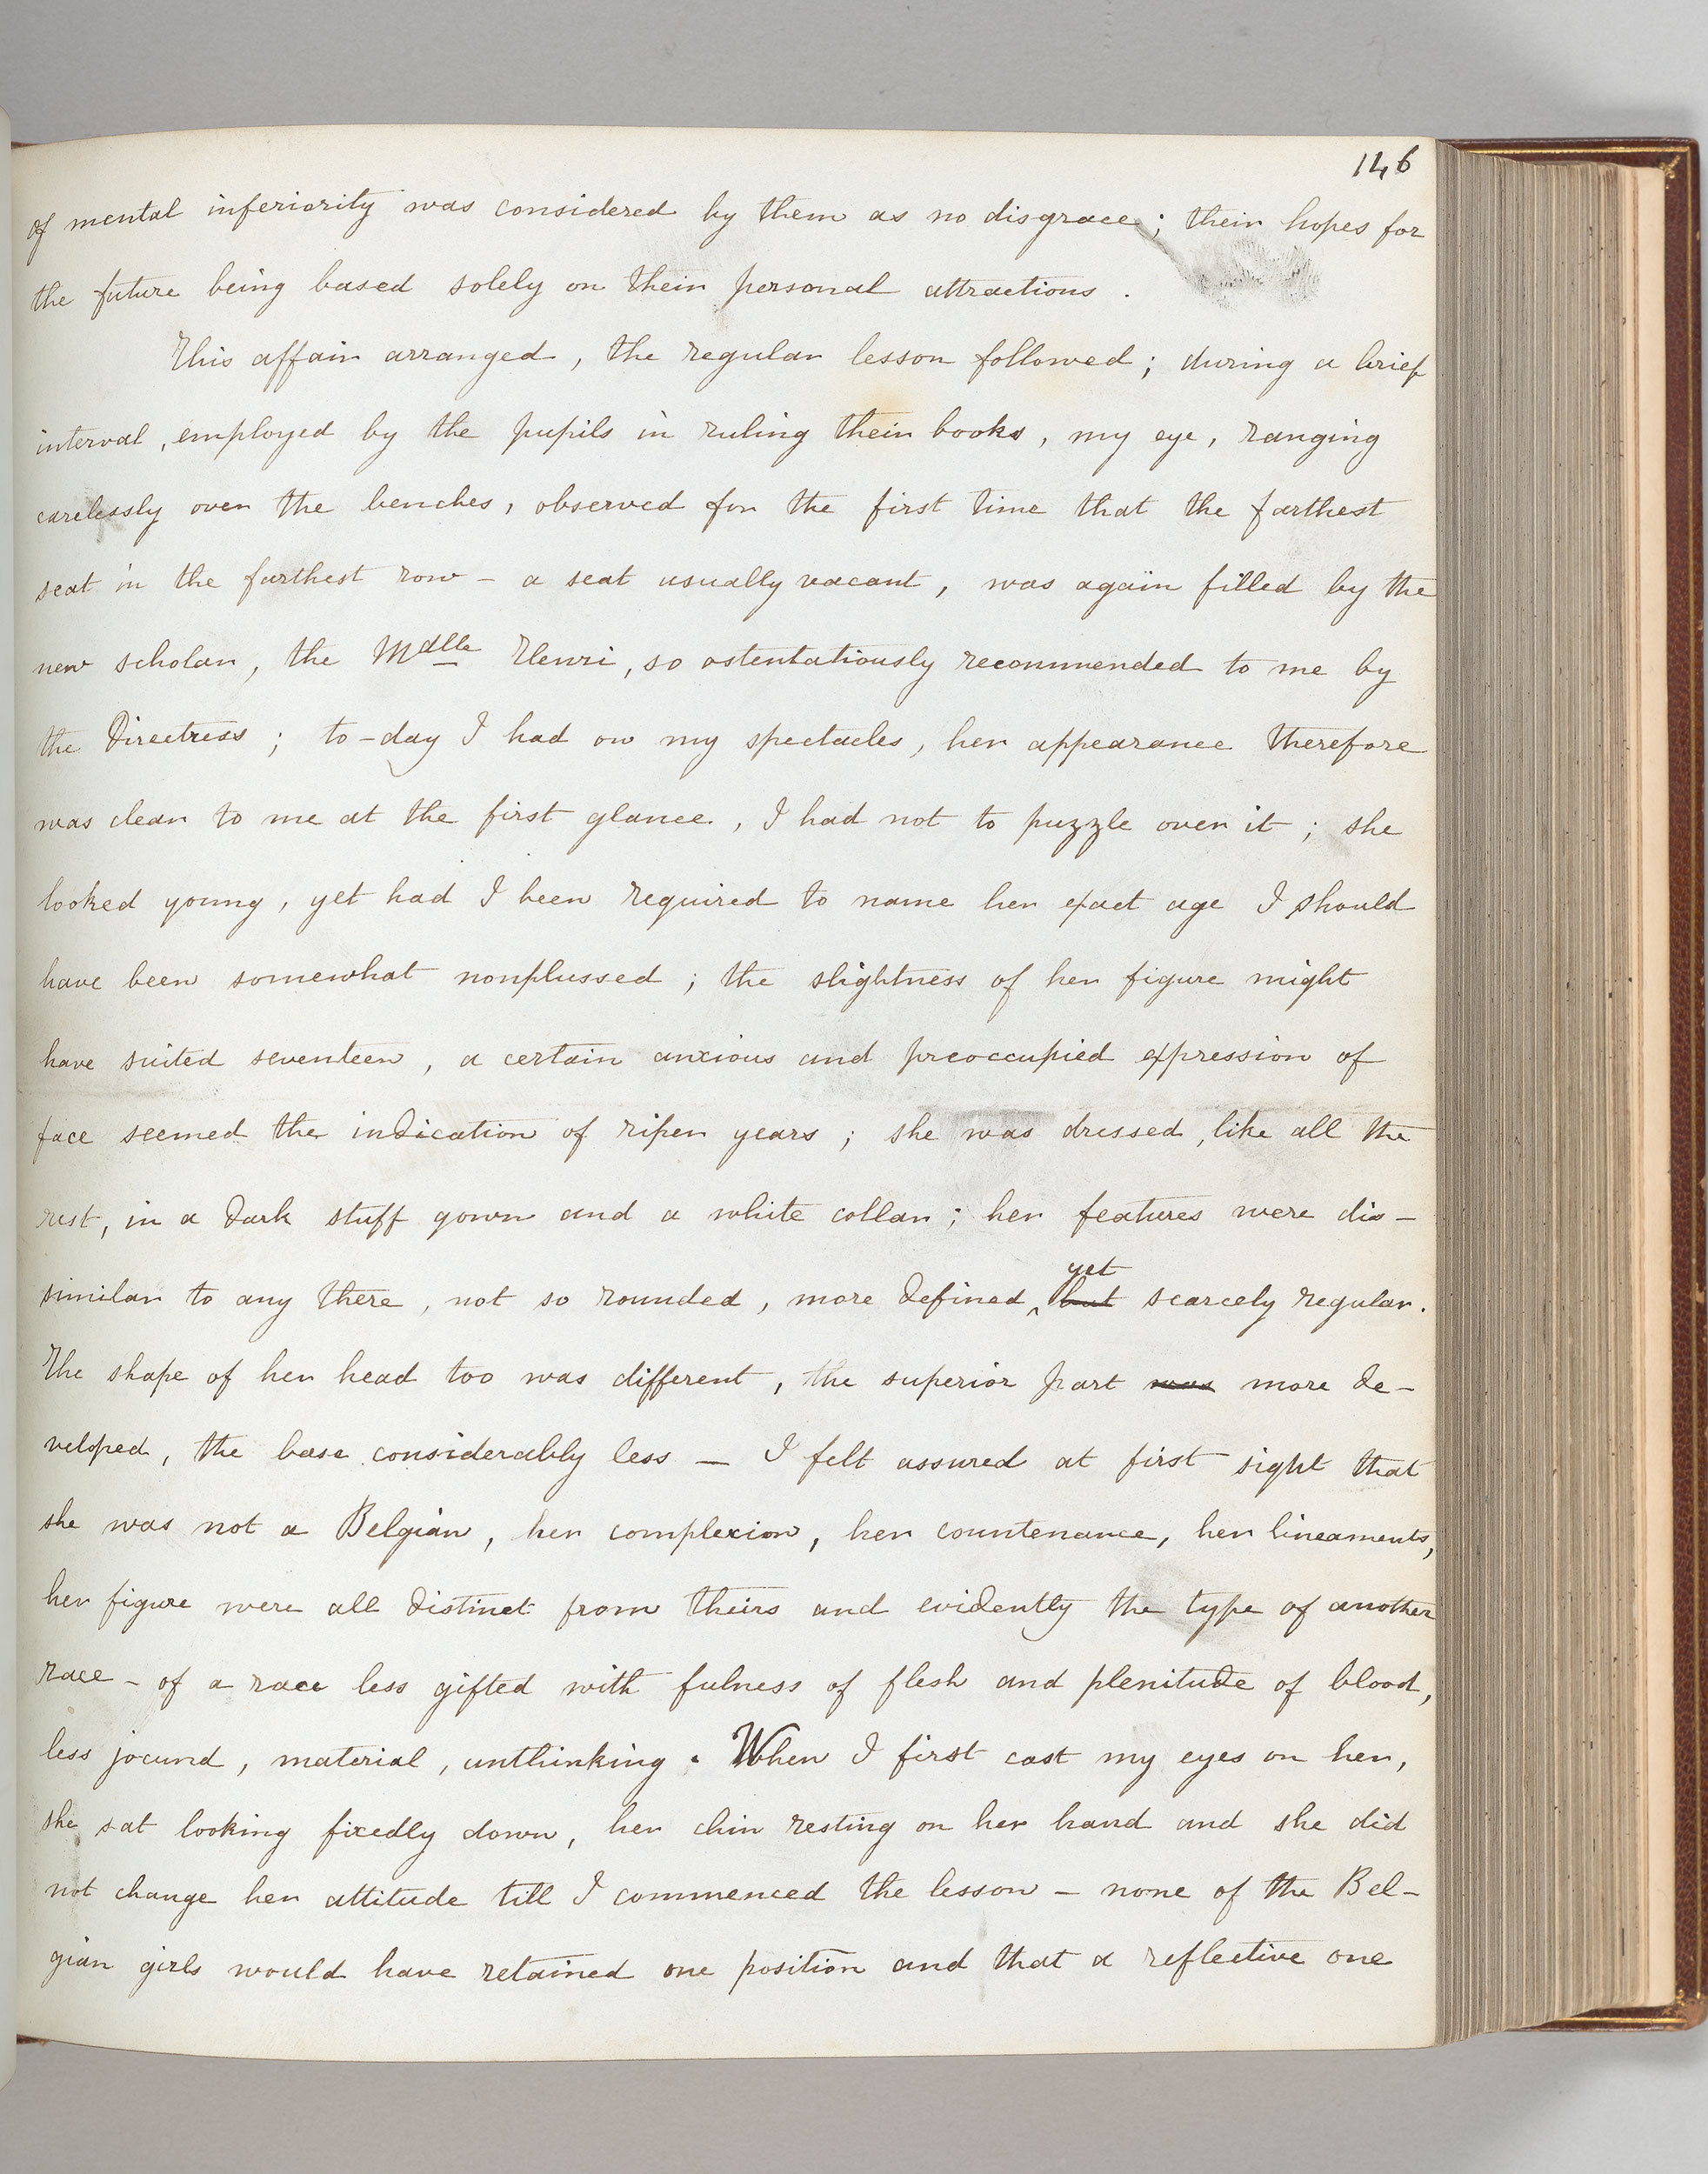 146
of mental inferiority was considered by them as no disgrace; their hopes for
the future being based solely on their personal attractions.
This affair arranged, the regular lesson followed; during a brief
interval, employed by the pupils in ruling their books, my eye, ranging
carelessly over the benches, observed for the first time that the farthest
seat in the farthest row – a seat usually vacant, was again filled by the
new scholar, the Mdlle Henri, so ostentatiously recommended to me by
the Directress; to-day I had on my spectacles, her appearance therefore
was clear to me at the first glance, I had not to puzzle over it; she
looked young, yet had I been required to name her exact age I should
have been somewhat nonplussed; the slightness of her figure might
have suited seventeen, a certain anxious and preoccupied expression of
face seemed the indication of riper years; she was dressed, like all the
rest, in a dark stuff gown and a white collar; her features were dis-
similar to any there, not so rounded, more defined, yet but scarcely regular.
The shape of her head too was different, the superior part was more de-
veloped, the base considerably less — I felt assured at first sight that
she was not a Belgian, her complexion, her countenance, her lineaments,
her figure were all distinct from theirs and evidently the type of another
race – of a race less gifted with fulness of flesh and plenitude of blood,
less jocund, material, unthinking. When I first cast my eyes on her,
she sat looking fixedly down, her chin resting on her hand and she did
not change her attitude till I commenced the lesson – none of the Bel-
gian girls would have retained one position and that a reflective one